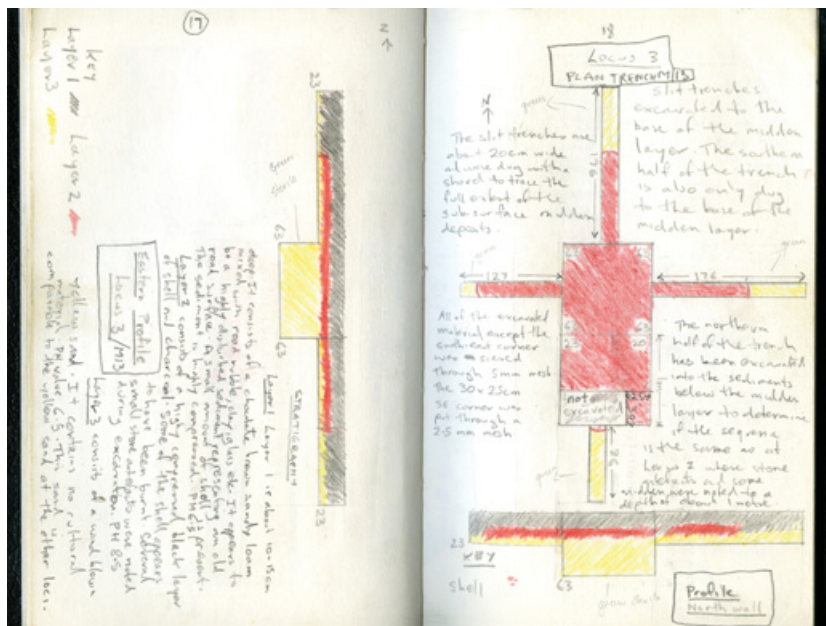 17
N
KEY
Layer 1 Layer 2
Layer 3
23
63
63
23
green
STRATIGRAPHY
Eastern Profile
Locus 3/1913
Layer 1 Layer 1 is about 10-15cm
deep. It consists of a chocolate brown sandy loam
mixed with road rubble, clay, glass etc. It appears to
be a highly disturbed sediment representing an old
road surface. A small amount of shell is present.
The sediment is highly compressed. PH
Layer 2 consists of a highly compressed black layer
of shell and charcoal some of the shell appears
to have been burnt. Several
small stone artefacts were noted
during excavation. PH 8.5
Layer 3 consists of a wind blown
yellow sand. It contains no cultural
material. PH value 6.5. This sand is
comparable to the yellow sand at the other loci.
18
Locus 3
PLAN TRENCH
green
N
176
The slit trenches are
about 20cm wide
and were dug with a
shovel to trace the
full extent of the
subsurface midden
deposits.
slit trenches
excavated to the
base of the midden
layer. The southern
half of the trench
is also only dug
to the base of the
midden layer.
green
green
127
176
63
63
23
20
All of the excavated
material except the
south-east corner
was sieved
through 5mm mesh
The 30x25cm
SE corner was
put through a
2.5 mm mesh
not
excavated
The northern
half of the trench
has been excavated
into the sediments
below the midden
layer to determine
if the sequence
is the same as at
Locus 2 where stone
artefacts and some
midden were noted to a
depth of about 1 metre.
green
23
KEY
shell
63
green
Profile
North wall